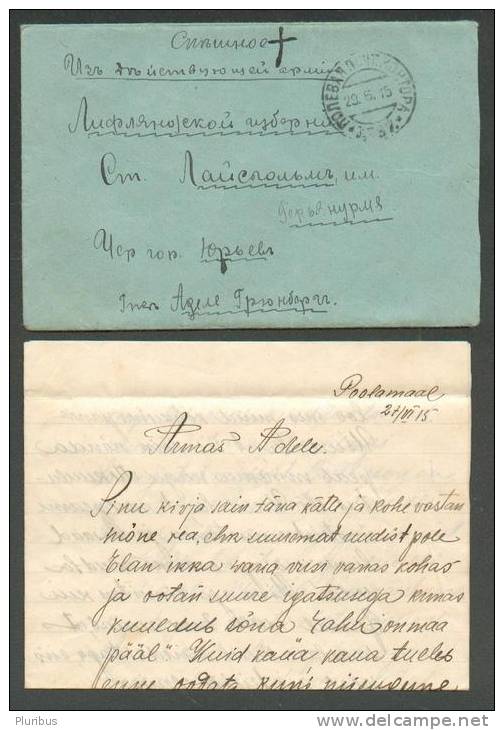 Спѣшное
Изъ дѣйствующей арміи
ПОЛЕВАЯ КОНТОРА
29.6.15
Лифляндской губерніи
Ст. Лайсгольмъ, им.
Чер гор. Юрьевъ
Аделе Грюнбергъ.
Poolamaal
27/VI 15
Armas Adele.
Sinu kirja sain täna kätte ja kohe vastan
mõne rea, ehk suuremat uudist pole
Elan ikka wana viisi vanas kohas
ja ootan suure igatsusega kunas
kuuldub sõna "rahu on maa
pääl" Kuid kaua kaua tuleb
enne oodata kuni niisugune
Pluribus
www.delcampe.net